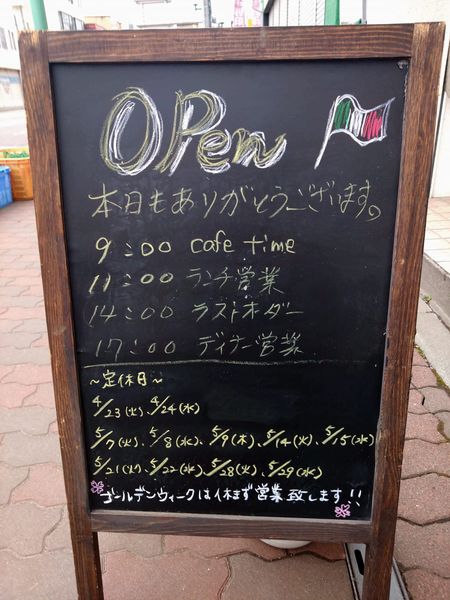 OPen
本日もありがとうございます。
9:00 cafe time
11:00 ランチ営業
14:00 ラストオーダー
17:00 ディナー営業
～定休日～
4/23(火)、4/24(水)
5/7(火)、5/8(水)、5/9(木)、5/14(火)、5/15(水)
5/21(火)、5/22(水)、5/28(火)、5/29(水)
ゴールデンウィークは休まず営業致します!!